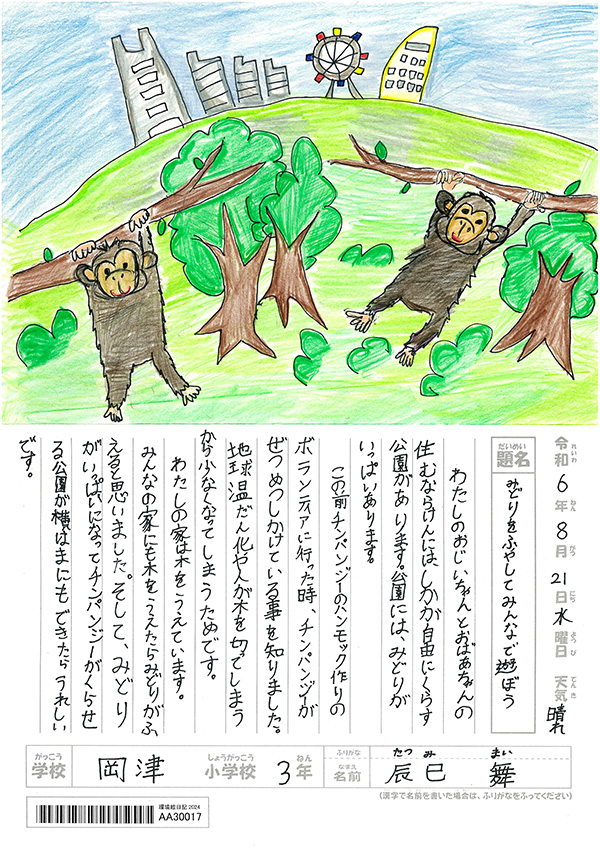 令和6年8月21日水曜日 天気 晴れ
れいわ ねん がつ にち ようび てんき
だいめい
題名 みどりをふやしてみんなで遊ぼう
わたしのおじいちゃんとおばあちゃんの
住むならけんには、しかが自由にくらす
公園があります。公園には、みどりが
いっぱいあります。
この前チンパンジーのハンモック作りの
ボランティアに行った時、チンパンジーが
ぜつめつしかけている事を知りました。
地球温だん化や人が木を切ってしまう
から少なくなってしまうためです。
わたしの家は木をうえています。
みんなの家にも木をうえたらみどりがふ
えると思いました。そして、みどり
がいっぱいになってチンパンジーがくらせ
る公園が横はまにもできたらうれしい
です。
がっこう しょうがっこう ねん ふりがな たつ み まい
学校 岡津 小学校 3年 なまえ 名前 辰巳 舞
(漢字で名前を書いた場合は、ふりがなをふってください)
環境絵日記2024
AA30017